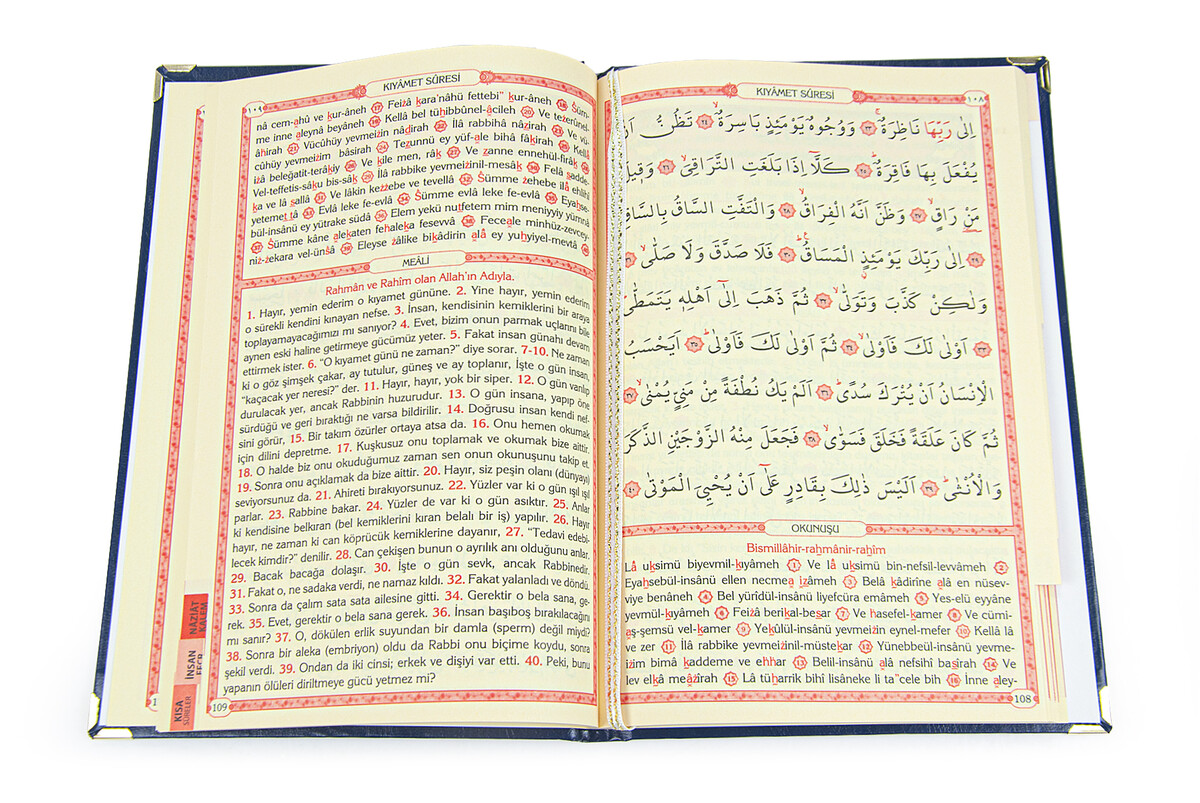 KIYÂMET SÛRESİ
١٠٨
اِلٰى رَبِّهَا نَاظِرَةٌۚ ﴿٢٣﴾ وَوُجُوهٌ يَوْمَئِذٍ بَاسِرَةٌۙ ﴿٢٤﴾ تَظُنُّ اَنْ
يُفْعَلَ بِهَا فَاقِرَةٌۜ ﴿٢٥﴾ كَلَّٓا اِذَا بَلَغَتِ التَّرَاقِيَۙ ﴿٢٦﴾ وَق۪يلَ
مَنْ رَاقٍۙ ﴿٢٧﴾ وَظَنَّ اَنَّهُ الْفِرَاقُۙ ﴿٢٨﴾ وَالْتَفَّتِ السَّاقُ بِالسَّاقِۙ
﴿٢٩﴾ اِلٰى رَبِّكَ يَوْمَئِذٍ الْمَسَاقُۜ ﴿٣٠﴾ فَلَا صَدَّقَ وَلَا صَلّٰىۙ ﴿٣١﴾
وَلٰكِنْ كَذَّبَ وَتَوَلّٰىۙ ﴿٣٢﴾ ثُمَّ ذَهَبَ اِلٰٓى اَهْلِه۪ يَتَمَطّٰىۜ
﴿٣٣﴾ اَوْلٰى لَكَ فَاَوْلٰىۙ ﴿٣٤﴾ ثُمَّ اَوْلٰى لَكَ فَاَوْلٰىۜ ﴿٣٥﴾ اَيَحْسَبُ
الْاِنْسَانُ اَنْ يُتْرَكَ سُدًىۜ ﴿٣٦﴾ اَلَمْ يَكُ نُطْفَةً مِنْ مَنِيٍّ يُمْنٰىۙ ﴿٣٧﴾
ثُمَّ كَانَ عَلَقَةً فَخَلَقَ فَسَوّٰىۙ ﴿٣٨﴾ فَجَعَلَ مِنْهُ الزَّوْجَيْنِ الذَّكَرَ
وَالْاُنْثٰىۜ ﴿٣٩﴾ اَلَيْسَ ذٰلِكَ بِقَادِرٍ عَلٰٓى اَنْ يُحْيِيَ الْمَوْتٰى ﴿٤٠﴾
OKUNUŞU
Bismillâhir-rahmânir-rahîm
Lâ uksimü biyevmil-kıyâmeh 1 Ve lâ uksimü bin-nefsil-levvâmeh 2
Eyahsebül-insânü ellen necmea izâmeh 3 Belâ kâdirîne alâ en nüsev-
viye benâneh 4 Bel yürîdül-insânü liyefcüra emâmeh 5 Yes-elü eyyâne
yevmül-kıyâmeh 6 Feizâ berikal-besar 7 Ve hasefel-kamer 8 Ve cümi-
aş-şemsü vel-kamer 9 Yekûlül-insânü yevmeizin eynel-mefer 10 Kellâ lâ
ve zer 11 İlâ rabbike yevmeizinil-müstekar 12 Yünebbeül-insânü yevme-
izim bimâ kaddeme ve ehhar 13 Belil-insânü alâ nefsihî basîrah 14 Ve
lev elkâ meâzîrah 15 Lâ tüharrik bihî lisâneke li ta"cele bih 16 İnne aley-
108
KIYÂMET SÛRESİ
١٠٩
nâ cem-ahû ve kur-âneh 17 Feizâ kara'nâhü fettebi" kur-âneh 18 Süm-
me inne aleynâ beyâneh 19 Kellâ bel tühibbûnel-âcileh 20 Ve tezerûnel-
âhirah 21 Vücûhüy yevmeizin nâdirah 22 İlâ rabbihâ nâzirah 23 Ve vü-
cûhüy yevmeizim bâsirah 24 Tezunnü ey yüf-ale bihâ fâkirah 25 Kellâ
izâ beleğatit-terâkiy 26 Ve kîle men, râk 27 Ve zanne ennehül-firâk 28
Vel-teffetis-sâku bis-sâk 29 İlâ rabbike yevmeizinil-mesâk 30 Felâ sadde-
ka ve lâ sallâ 31 Ve lâkin kezzebe ve tevellâ 32 Sümme zehebe ilâ ehlihî
yetemet tâ 33 Evlâ leke fe-evlâ 34 Sümme evlâ leke fe-evlâ 35 Eyahse-
bül-insânü ey yütrake südâ 36 Elem yekü nutfetem mim meniyyiy yümnâ
37 Sümme kâne alekaten fehaleka fesevvâ 38 Feceale minhüz-zevcey-
niz-zekara vel-ünsâ 39 Eleyse zâlike bikâdirin alâ ey yuhyiyel-mevtâ 40
MEÂLİ
Rahmân ve Rahîm olan Allah'ın Adıyla.
1. Hayır, yemin ederim o kıyamet gününe. 2. Yine hayır, yemin ederim
o sürekli kendini kınayan nefse. 3. İnsan, kendisinin kemiklerini bir araya
toplayamayacağımızı mı sanıyor? 4. Evet, bizim onun parmak uçlarını bile
aynen eski haline getirmeye gücümüz yeter. 5. Fakat insan günahı devam
ettirmek ister. 6. "O kıyamet günü ne zaman?" diye sorar. 7-10. Ne zaman
ki o göz şimşek çakar, ay tutulur, güneş ve ay toplanır, İşte o gün insan,
"kaçacak yer neresi?" der. 11. Hayır, hayır, yok bir siper. 12. O gün varılıp
durulacak yer, ancak Rabbinin huzurudur. 13. O gün insana, yapıp öne
sürdüğü ve geri bıraktığı ne varsa bildirilir. 14. Doğrusu insan kendi nef-
sini görür, 15. Bir takım özürler ortaya atsa da. 16. Onu hemen okumak
için dilini depretme. 17. Kuşkusuz onu toplamak ve okumak bize aittir.
18. O halde biz onu okuduğumuz zaman sen onun okunuşunu takip et.
19. Sonra onu açıklamak da bize aittir. 20. Hayır, siz peşin olanı (dünyayı)
seviyorsunuz da. 21. Ahireti bırakıyorsunuz. 22. Yüzler var ki o gün ışıl ışıl
parlar. 23. Rabbine bakar. 24. Yüzler de var ki o gün asıktır. 25. Anlar
ki kendisine belkıran (bel kemiklerini kıran belalı bir iş) yapılır. 26. Hayır
hayır, ne zaman ki can köprücük kemiklerine dayanır, 27. "Tedavi edebi-
lecek kimdir?" denilir. 28. Can çekişen bunun o ayrılık anı olduğunu anlar.
29. Bacak bacağa dolaşır. 30. İşte o gün sevk, ancak Rabbinedir.
31. Fakat o, ne sadaka verdi, ne namaz kıldı. 32. Fakat yalanladı ve döndü.
33. Sonra da çalım sata sata ailesine gitti. 34. Gerektir o bela sana, ge-
rek. 35. Evet, gerektir o bela sana gerek. 36. İnsan başıboş bırakılacağını
mı sanır? 37. O, dökülen erlik suyundan bir damla (sperm) değil miydi?
38. Sonra bir aleka (embriyo) oldu da Rabbi onu biçime koydu, sonra
şekil verdi. 39. Ondan da iki cinsi; erkek ve dişiyi var etti. 40. Peki, bunu
yapanın ölüleri diriltmeye gücü yetmez mi?
109
NÂZİÂT
KALEM
İNSAN
FECR
KISA
SÛRELER